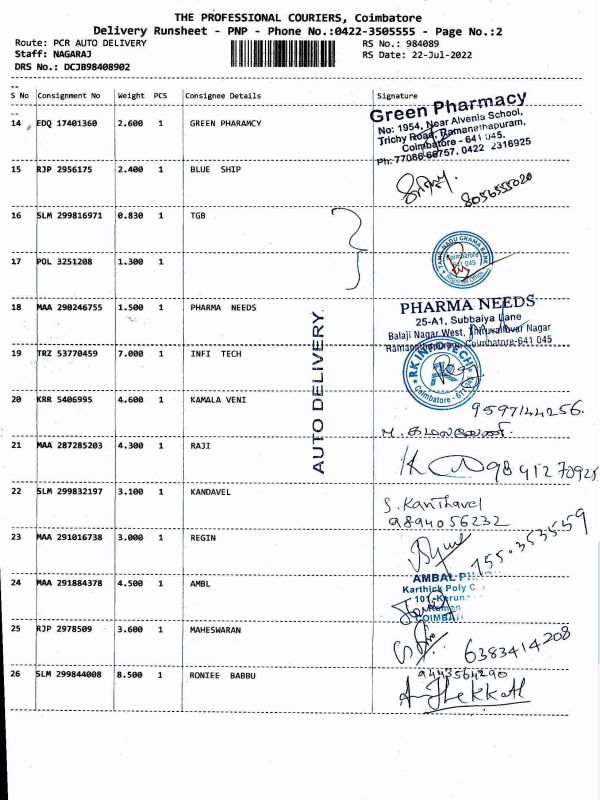 THE PROFESSIONAL COURIERS, Coimbatore
Delivery Runsheet - PNP - Phone No.:0422-3505555 - Page No.:2
Route: PCR AUTO DELIVERY RS No.: 984089
Staff: NAGARAJ RS Date: 22-Jul-2022
DRS No.: DCJB98408902
S No Consignment No Weight PCS Consignee Details Signature
14 EDQ 17401360 2.600 1 GREEN PHARAMCY
Green Pharmacy
No: 1954, Near Alvenia School,
Trichy Road, Ramanathapuram,
Coimbatore - 641 045.
Ph: 77086 66757, 0422 2316925
15 RJP 2956175 2.400 1 BLUE SHIP
8056555020
16 SLM 299816971 0.830 1 TGB
TAMIL NADU GRAMA BANK
Coimbatore
641 045
Regional Office
17 POL 3251208 1.300 1
18 MAA 290246755 1.500 1 PHARMA NEEDS
PHARMA NEEDS
25-A1, Subbaiya Lane
Balaji Nagar West, Thiruvalluvar Nagar
Ramanathapuram, Coimbatore-641 045
19 TRZ 53770459 7.000 1 INFI TECH
RK INFO TECH
Coimbatore - 641
20 KRR 5406995 4.600 1 KAMALA VENI
9597144256.
21 MAA 287285203 4.300 1 RAJI
9841270925
22 SLM 299832197 3.100 1 KANDAVEL
S. Kanthavel
9894056232
23 MAA 291016738 3.000 1 REGIN
24 MAA 291884378 4.500 1 AMBL
AMBAL
Karthick Poly
101
COIMBAT
25 RJP 2978509 3.600 1 MAHESWARAN
6383414208
26 SLM 299844008 8.500 1 RONIEE BABBU
9443564290
AUTO DELIVERY